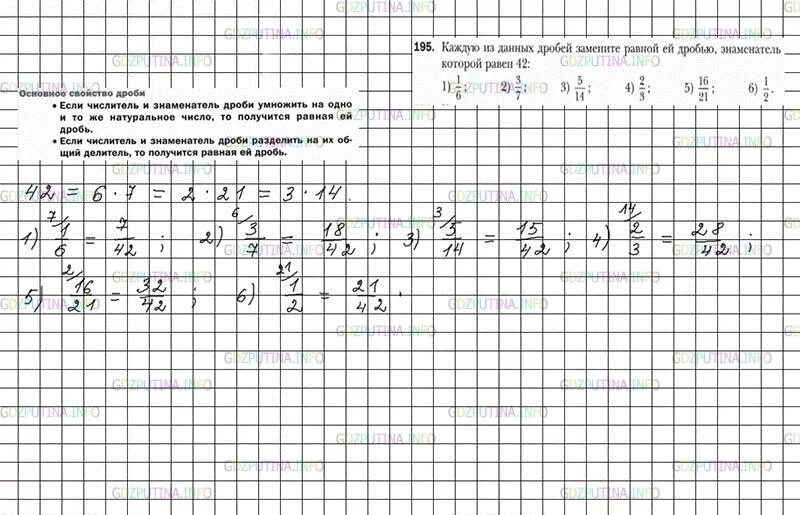 GDZPUTINA.INFO
195. Каждую из данных дробей замените равной ей дробью, знаменатель
которой равен 42:
1) 1/6; 2) 3/7; 3) 5/14; 4) 2/3; 5) 16/21; 6) 1/2.
Основное свойство дроби
• Если числитель и знаменатель дроби умножить на одно
и то же натуральное число, то получится равная ей
дробь.
• Если числитель и знаменатель дроби разделить на их об-
щий делитель, то получится равная ей дробь.
42 = 6 · 7 = 2 · 21 = 3 · 14.
1) 7/ 1/6 = 7/42 ; 2) 6/ 3/7 = 18/42 ; 3) 3/ 5/14 = 15/42 ; 4) 14/ 2/3 = 28/42 ;
5) 2/ 16/21 = 32/42 ; 6) 21/ 1/2 = 21/42 .